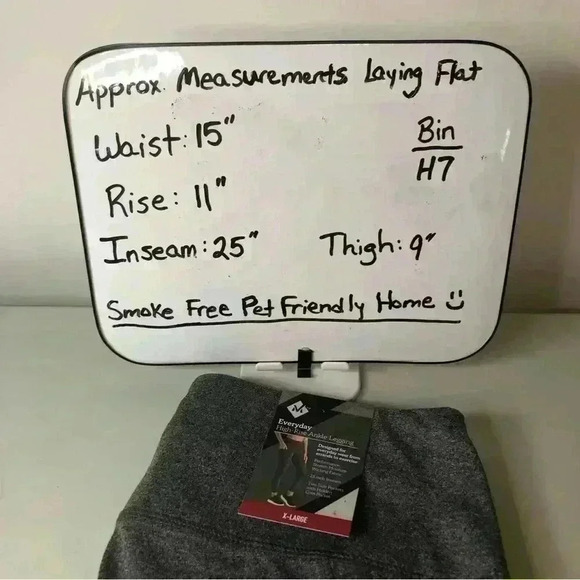 Approx. Measurements Laying Flat
Waist: 15"
Bin
H7
Rise: 11"
Inseam: 25"
Thigh: 9"
Smoke Free Pet Friendly Home
Everyday
High-Rise Ankle Legging
Designed for
everyday wear from
errands to exercise
X-LARGE